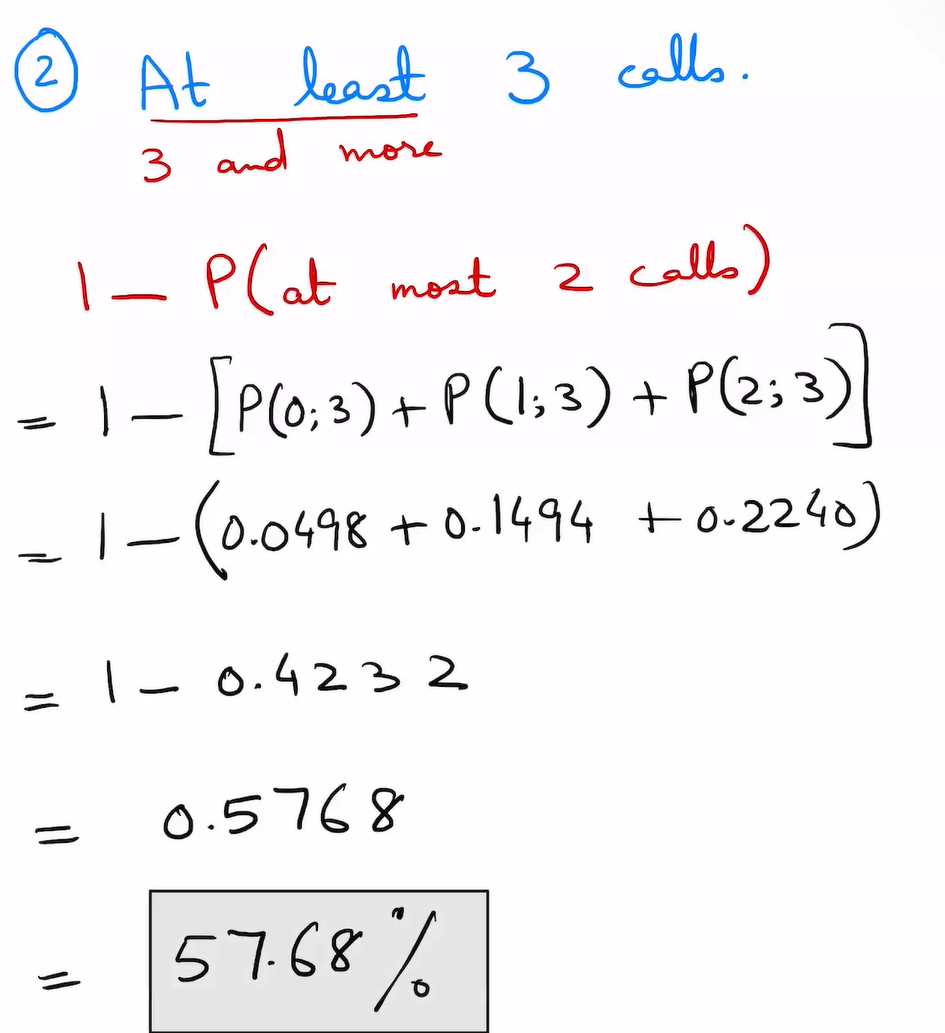 ② At least 3 calls.
3 and more
1 - P(at most 2 calls)
= 1 - [P(0;3) + P(1;3) + P(2;3)]
= 1 - (0.0498 + 0.1494 + 0.2240)
= 1 - 0.4232
= 0.5768
= 57.68%